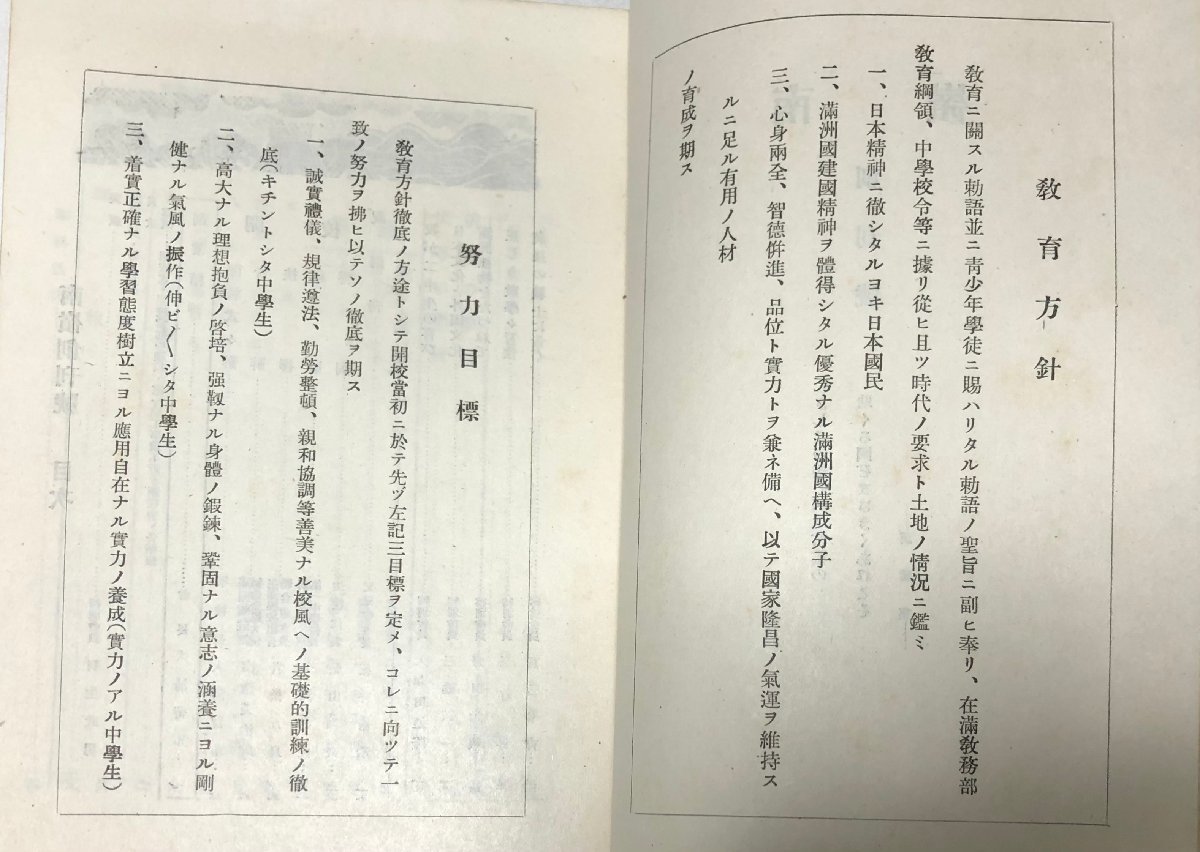 敎育方針
敎育ニ關スル勅語並ニ靑少年學徒ニ賜ハリタル勅語ノ聖旨ニ副ヒ奉リ、在滿敎務部
敎育綱領、中學校令等ニ據リ從ヒ且ツ時代ノ要求ト土地ノ情況ニ鑑ミ
一、日本精神ニ徹シタルヨキ日本國民
二、滿洲國建國精神ヲ體得シタル優秀ナル滿洲國構成分子
三、心身兩全、智德併進、品位ト實力トヲ兼ネ備ヘ、以テ國家隆昌ノ氣運ヲ維持ス
ルニ足ル有用ノ人材
ノ育成ヲ期ス
努力目標
敎育方針徹底ノ方途トシテ開校當初ニ於テ先ヅ左記三目標ヲ定メ、コレニ向ツテ一
致ノ努力ヲ拂ヒ以テソノ徹底ヲ期ス
一、誠實禮儀、規律遵法、勤勞整頓、親和協調等善美ナル校風ヘノ基礎的訓練ノ徹
底(キチントシタ中學生)
二、高大ナル理想抱負ノ啓培、强靱ナル身體ノ鍛鍊、鞏固ナル意志ノ涵養ニヨル剛
健ナル氣風ノ振作(伸ビ〳〵シタ中學生)
三、着實正確ナル學習態度樹立ニヨル應用自在ナル實力ノ養成(實力ノアル中學生)